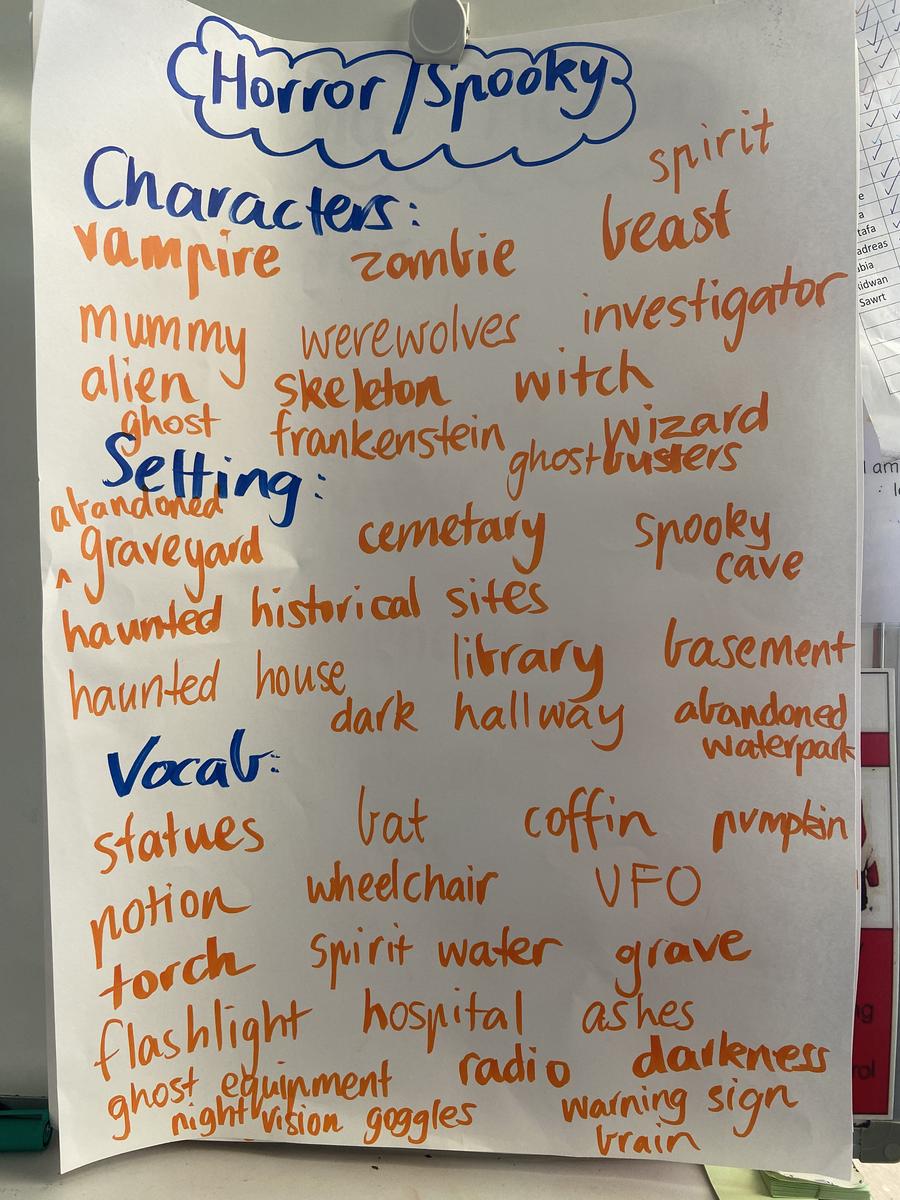 Horror/Spooky
spirit
Characters:
vampire zombie beast
mummy werewolves investigator
alien skeleton witch
ghost frankenstein wizard
ghostbusters
Setting:
abandoned
^ graveyard cemetary spooky
cave
haunted historical sites
haunted house library basement
dark hallway abandoned
waterpark
Vocab:
statues bat coffin pumpkin
potion wheelchair UFO
torch spirit water grave
flashlight hospital ashes
ghost equipment radio darkness
night vision goggles warning sign
brain
tafa
adreas
bia
kidwan
Sawrt
I am